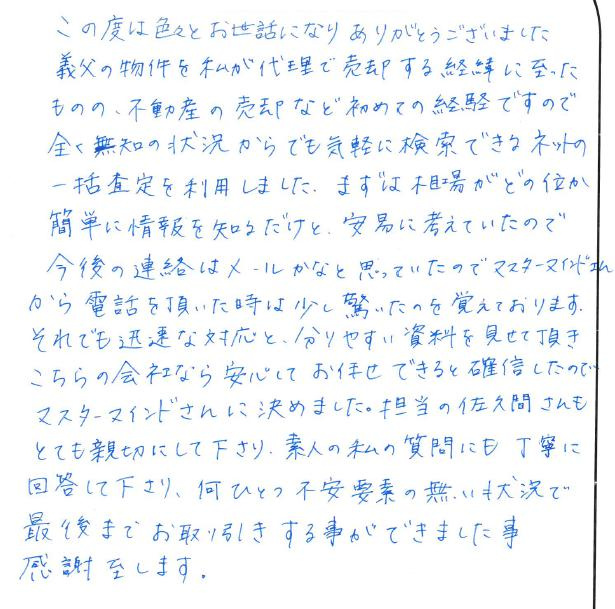 この度は色々とお世話になりありがとうございました
義父の物件を私が代理で売却する経緯に至った
ものの、不動産の売却など初めての経験ですので
全く無知の状況からでも気軽に検索できるネットの
一括査定を利用しました。まずは相場がどの位か
簡単に情報を知るだけと、安易に考えていたので
今後の連絡はメールかなと思っていたのでマスターマインドさん
から電話を頂いた時は少し驚いたのを覚えております。
それでも迅速な対応と、分りやすい資料を見せて頂き
こちらの会社なら安心してお任せできると確信したので
マスターマインドさんに決めました。担当の佐久間さんも
とても親切にして下さり、素人の私の質問にも丁寧に
回答して下さり、何ひとつ不安要素の無い状況で
最後までお取り引きする事ができました事
感謝至します。